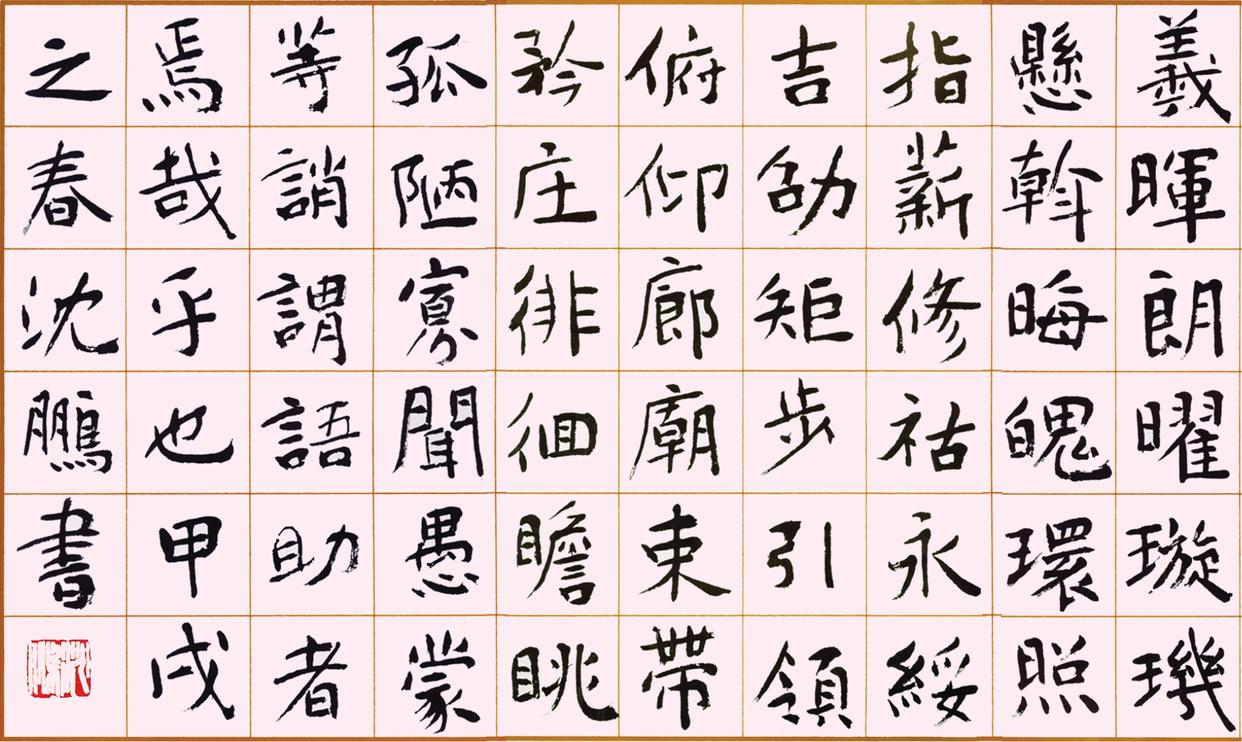 羲暉朗曜璇璣
懸斡晦魄環照
指薪修祜永綏
吉劭矩步引領
俯仰廊廟束帶
矜庄徘徊瞻眺
孤陋寡聞愚蒙
等誚謂語助者
焉哉乎也甲戌
之春沈鵬書